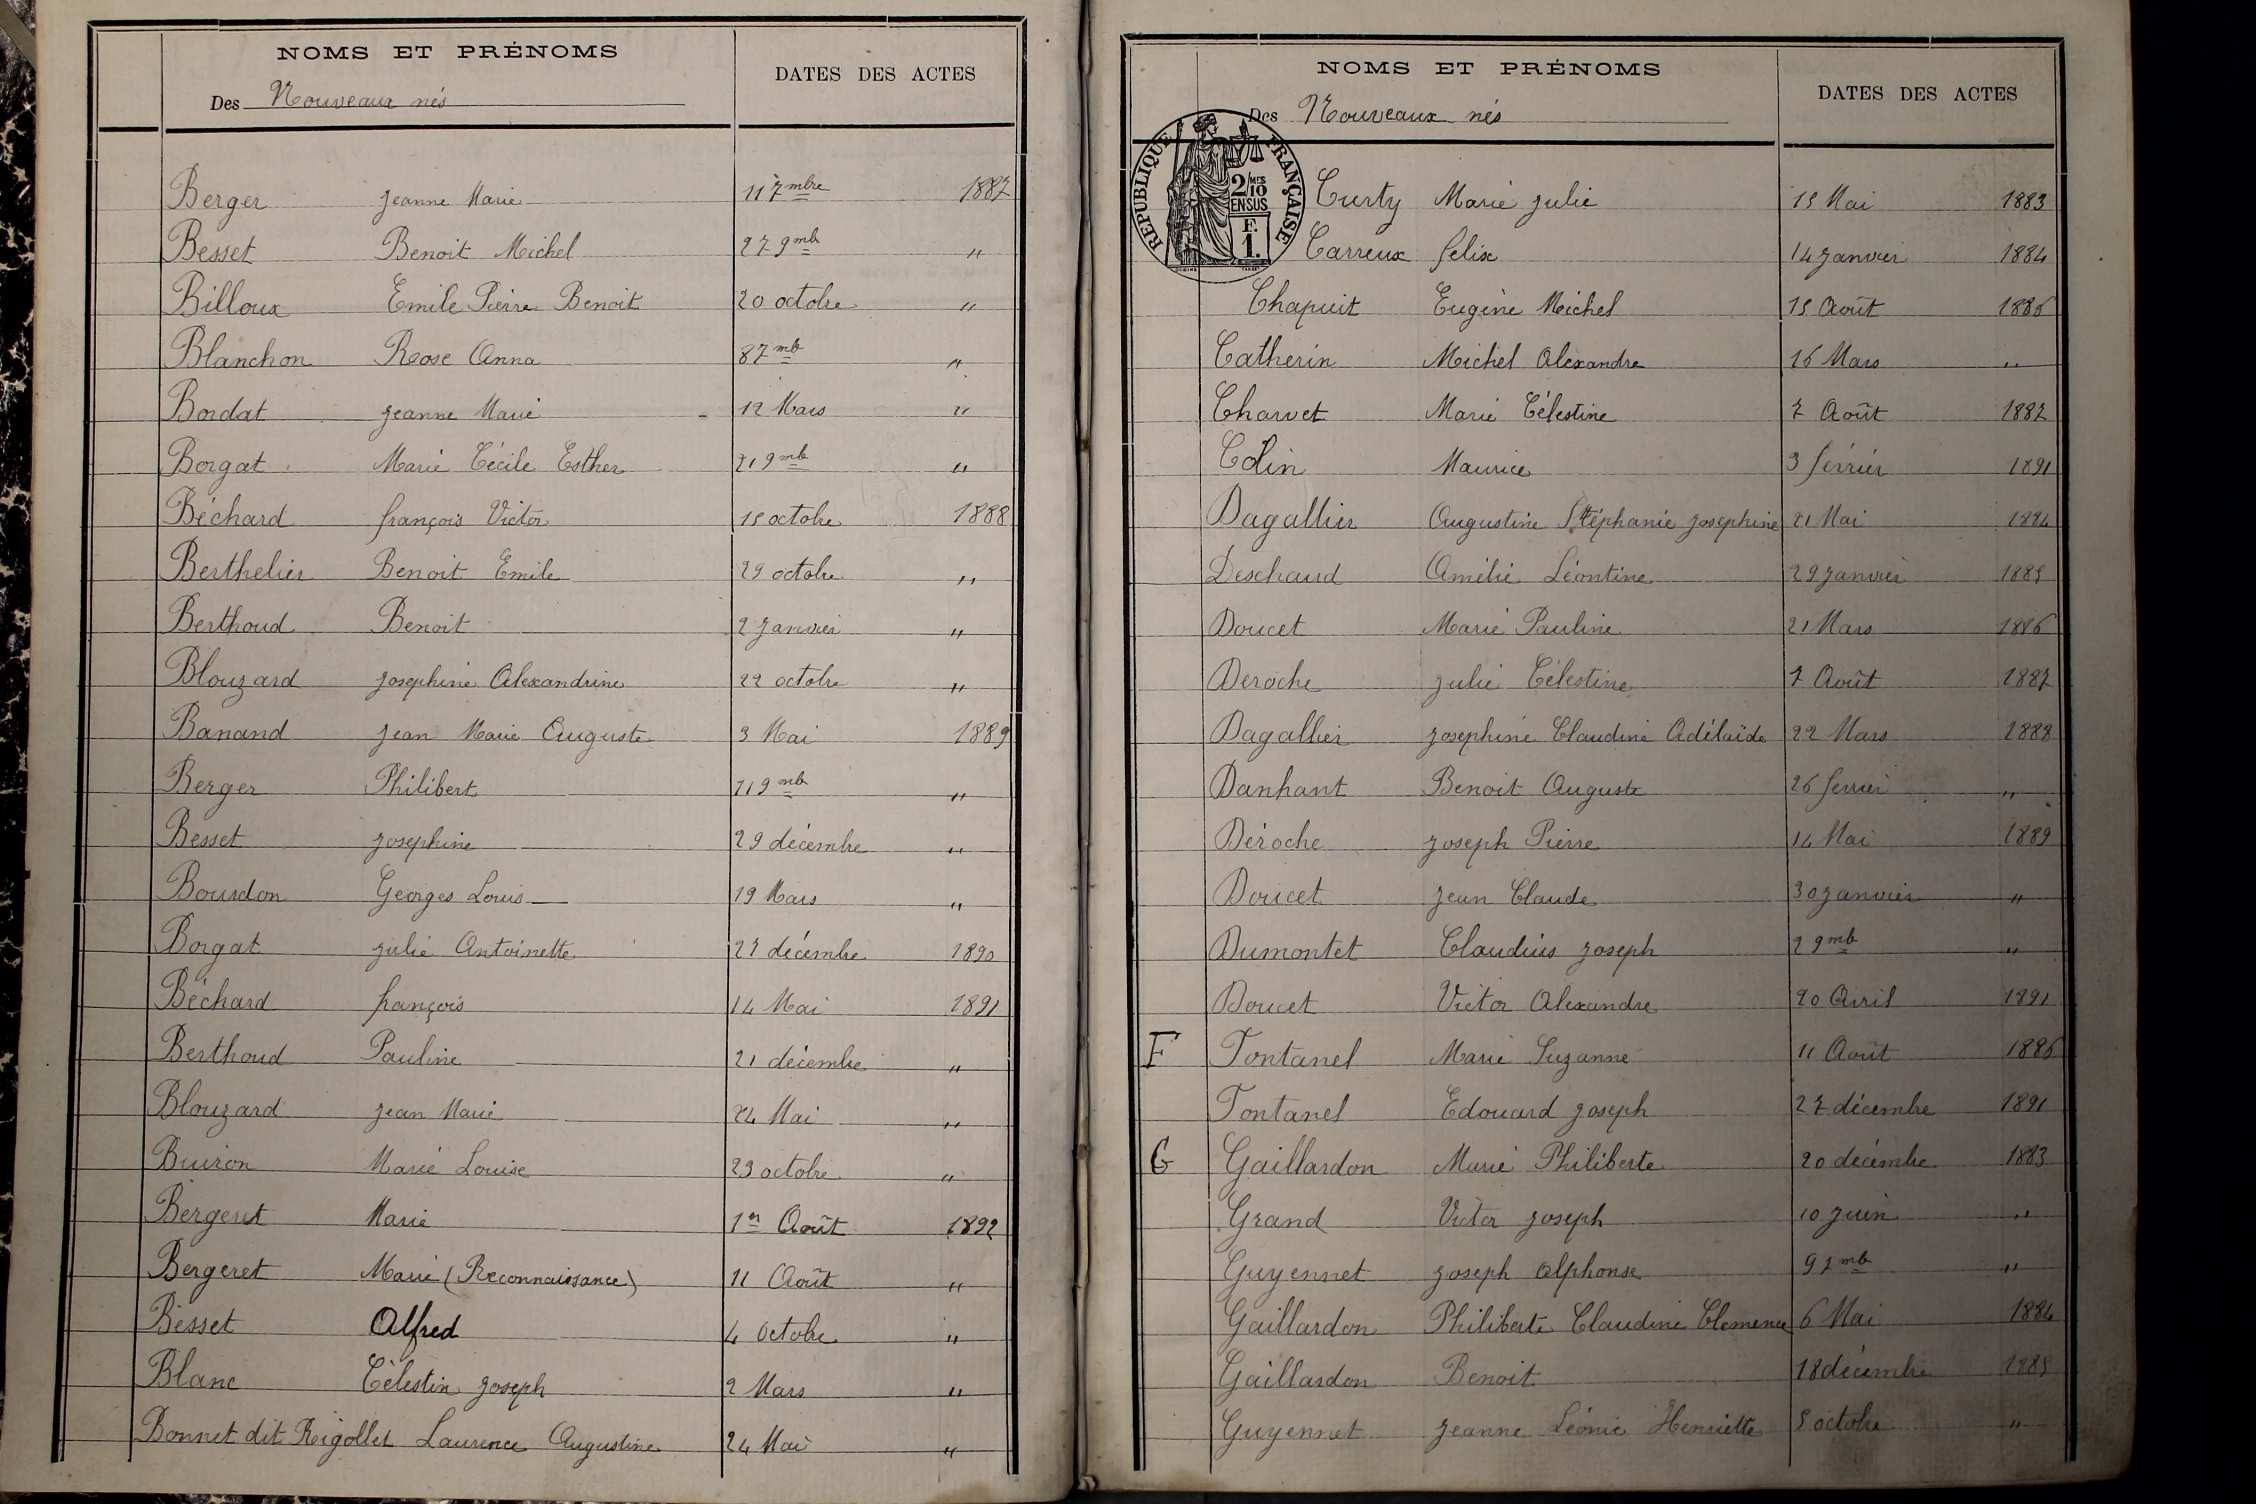 NOMS ET PRÉNOMS
DATES DES ACTES
Des Nouveaux nés
Berger Jeanne Marie 11 7mbre 1887
Besset Benoit Michel 27 9mb "
Billoux Emile Pierre Benoit 20 octobre "
Blanchon Rose Anna 8 7mb "
Bordat Jeanne Marie - 12 Mars "
Borgat Marie Cécile Esther 21 9mb "
Béchard françois Victor 15 octobre 1888
Berthelier Benoit Emile 29 octobre "
Berthoud Benoit 2 Janvier "
Blouzard Josephine Alexandrine 22 octobre "
Banand Jean Marie Auguste 3 Mai 1889
Berger Philibert 11 9mb "
Besset Josephine 29 décembre "
Bourdon Georges Louis 19 Mars "
Borgat Julie Antoinette 27 décembre 1890
Béchard françois 14 Mai 1891
Berthoud Pauline 21 décembre "
Blouzard Jean Marie 24 Mai "
Buiron Marie Louise 23 octobre "
Bergeret Marie 1er Août 1892
Bergeret Marie (Reconnaissance) 11 Août "
Besset Alfred 4 octobre "
Blanc Célestin Joseph 2 Mars "
Bonnet dit Rigollet Laurence Augustine 24 Mai "
NOMS ET PRÉNOMS
DATES DES ACTES
Des Nouveaux nés
RÉPUBLIQUE FRANÇAISE
2/10 MES
EN SUS
F.
1.
Curty Marie Julie 15 Mai 1883
Carreux felix 14 Janvier 1884
Chapuit Eugène Michel 15 Août 1886
Catherin Michel Alexandre 16 Mars "
Charvet Marie Célestine 7 Août 1887
Colin Maurice 3 février 1891
Dagallier Augustine Stéphanie Josephine 21 Mai 1884
Deschaud Amélie Léontine 29 Janvier 1885
Doucet Marie Pauline 21 Mars 1886
Deroche Julie Célestine 7 Août 1887
Dagallier Josephine Claudine Adélaïde 22 Mars 1888
Danhant Benoit Auguste 26 fevrier "
Déroche Joseph Pierre 14 Mai 1889
Doucet Jean Claude 30 Janvier "
Dumontet Claudius Joseph 2 9mb "
Doucet Victor Alexandre 20 Avril 1891
F Fontanel Marie Suzanne 11 Août 1886
Fontanel Edouard Joseph 27 décembre 1891
G Gaillardon Marie Philiberte 20 décembre 1883
Grand Victor Joseph 10 Juin "
Guyennet Joseph Alphonse 9 7mb "
Gaillardon Philiberte Claudine Clemence 6 Mai 1884
Gaillardon Benoit 18 décembre 1885
Guyennet Jeanne Léonie Henriette 5 octobre "